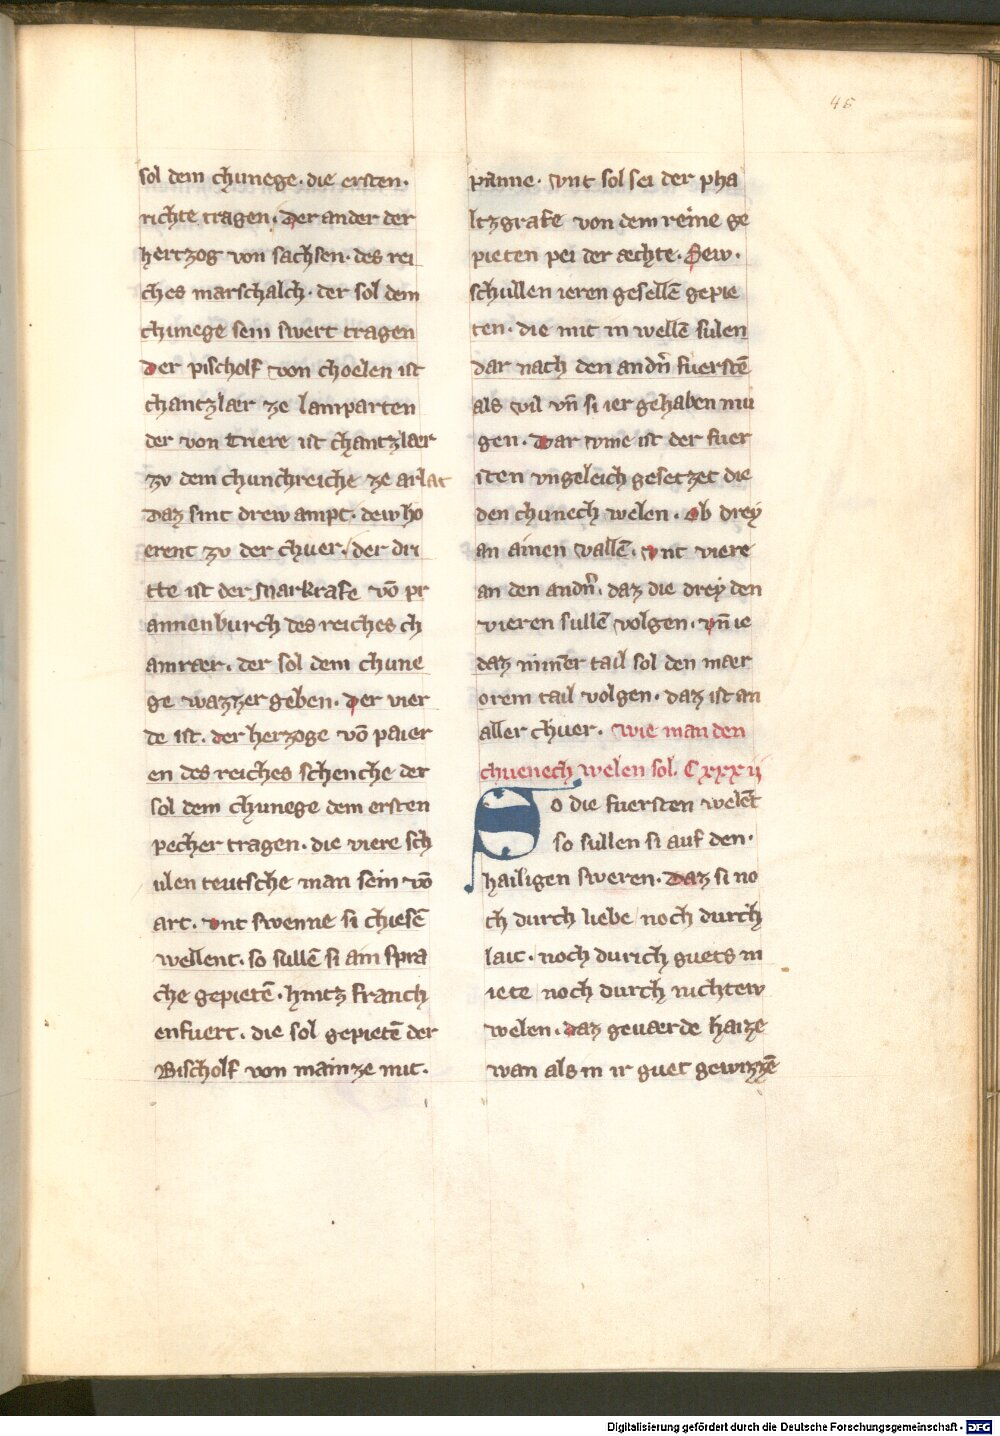 46
sol dem chunege · die ersten ·
richte tragen · Der ander der
hertzog von sachsen · des rei
ches marschalch · der sol dem
chunege sein swert tragen
Der pischolf von choelen ist
chantzlær ze lamparten
der von triere ist chantzlær
zv dem chunchreiche ze arlat
Daz sint drew ampt · dew ho
erent zv der chuer · der dri
tte ist der Markrafe vō pr
annenburch des reiches ch
amrær · der sol dem chune
ge wazzer geben · Der vier
de ist · der herzoge vō paier
en des reiches schenche der
sol dem chunege dem ersten
pecher tragen · die viere sch
ulen teutsche man sein vō
art · vnt swenne si chiesē
wellent · so sullē si ain spra
che gepietē · hintz franch
enfuert · die sol gepietē der
Bischolf von mainze mit ·
panne · vnt sol sei der pha
ltzgrafe von dem reine ge
pieten pei der æchte · Dew ·
schullen ieren gesellē gepie
ten · die mit in wellē sulen
dar nach den andn̄ fuerstē
als vil vn̄ si ier gehaben mu
gen · Dar vme ist der fuer
sten vngeleich gesetzet die
den chunech welen · Ob drey
an ainen vallē · vnt viere
an den andn̄ · daz die drey den
vieren sullē volgen · vn̄ ie
daz minner tail sol den mær
orem tail volgen · daz ist an
aller chuer · wie man den
chuenech welen sol · C xxxij
So die fuersten welēt
so sullen si auf den ·
hailigen sweren · Daz si no
ch durch liebe noch durch
lait · noch durich guets m
iete noch durch nichtew
welen · daz geuærde haize
wan als in ir guet gewizzē
Digitalisierung gefördert durch die Deutsche Forschungsgemeinschaft - DFG